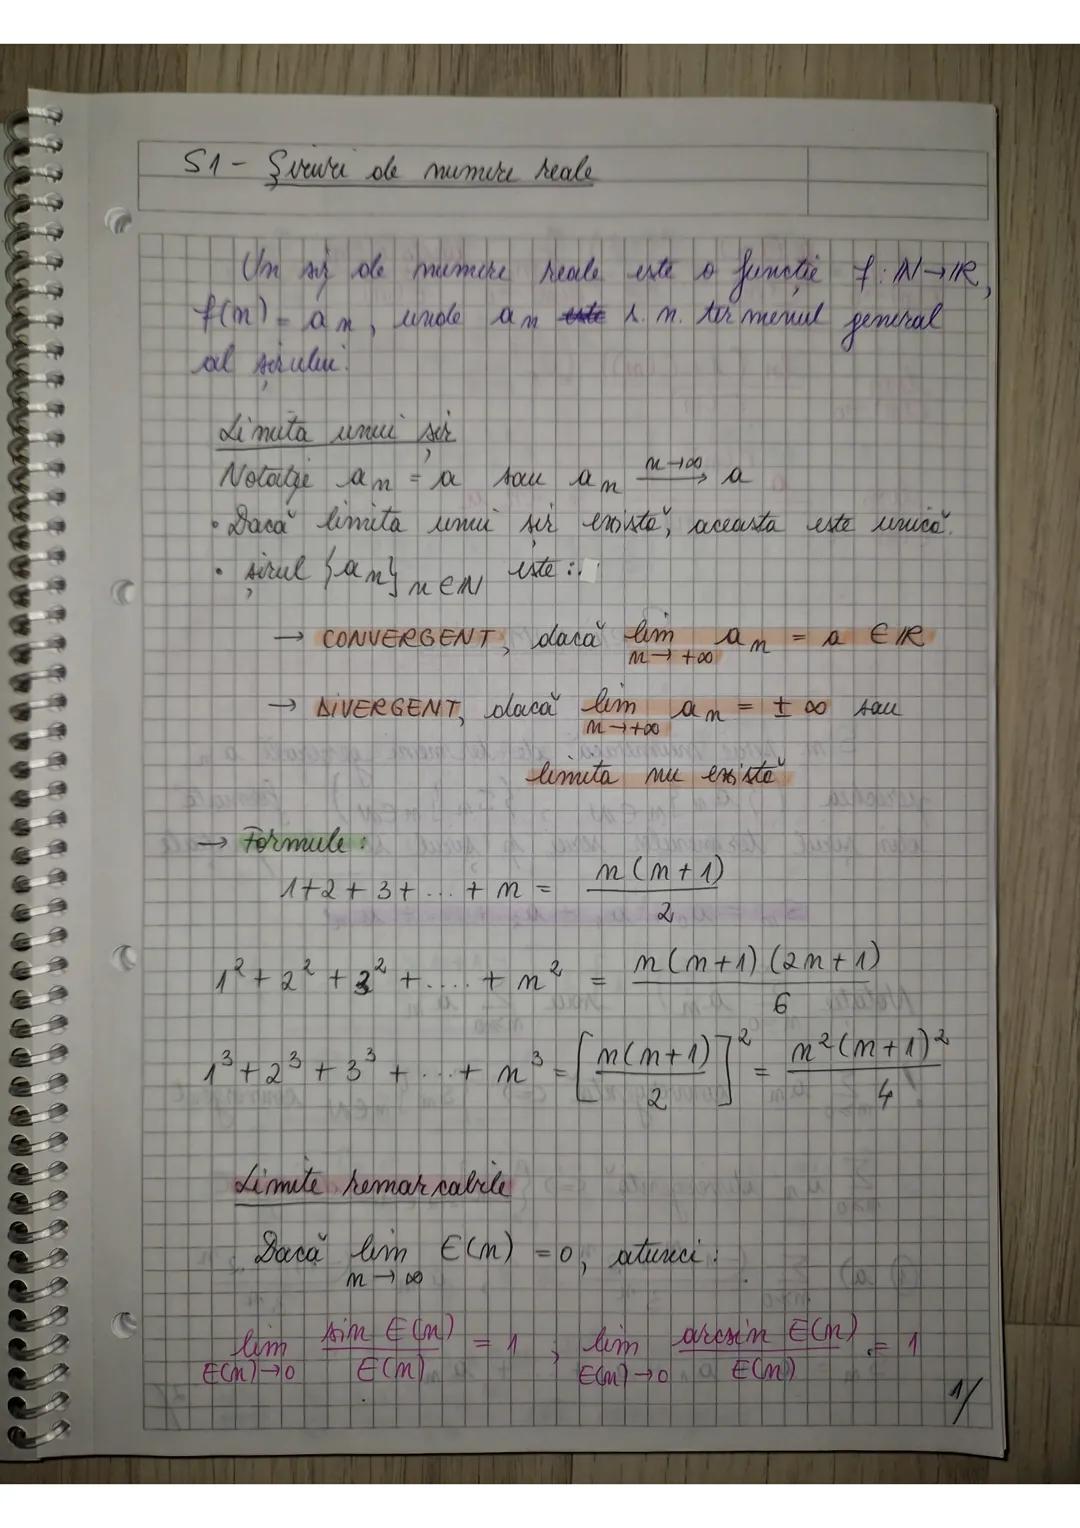 S1 - Șiruri de numere reale
Un șir de numere reale este o funcție f: ℕ→ℝ,
f(n) = a_n, unde a_n ~~este~~ s. n. termenul general
al șirului.
Limita unui șir
Notație a_n = a sau a_n \xrightarrow{n→∞} a
• Dacă limita unui șir există, aceasta este unică.
• șirul {a_n}_{n∈ℕ} este:
→ CONVERGENT, dacă lim_{n→+∞} a_n = a ∈ ℝ
→ DIVERGENT, dacă lim_{n→+∞} a_n = ± ∞ sau
limita nu există
→ Formule:
1+2+3+...+n = \frac{n(n+1)}{2}
1²+2²+3²+....+n² = \frac{n(n+1)(2n+1)}{6}
1³+2³+3³+...+n³ = [\frac{n(n+1)}{2}]² = \frac{n²(n+1)²}{4}
Limite remarcabile
Dacă lim_{n→∞} E(n) = 0, atunci:
lim_{E(n)→0} \frac{sin E(n)}{E(n)} = 1 ; lim_{E(n)→0} \frac{arcsin E(n)}{E(n)} = 1
1/